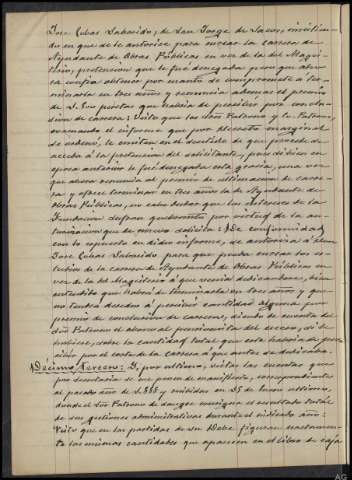 José Cubas Laborido, de San Jorge de Sacos, insistien-
do en que se le autorice para cursar la carrera de
Ayudante de Obras Públicas en vez de la del Magis-
terio, pretension que le fué denegada, pero que aho-
ra confia obtener por cuanto se compromete á ter-
minarla en tres años y renuncia ademas el premio
de pesetas que habria de percibir por conclu-
sion de carrera: Visto que los Sres Patrono y Patrono,
evacuando el informe que por decreto marginal
se ordenó, lo emiten en el sentido de que procede se
acceda á la pretension del solicitante, pues si bien en
época anterior le fué denegada esta gracia, una vez
que ahora renuncia al premio de terminacion de carre-
ra y ofrece terminar en tres años la de Ayudante de
Obras Públicas, no cabe dudar que los intereses de la
Fundacion sufran quebranto por virtud de la au-
torizacion que de nuevo solicita: De conformidad
con lo expuesto en dicho informe, se autoriza á Don
José Cubas Laborido para que pueda cursar los es-
tudios de la carrera de Ayudante de Obras Públicas en
vez de la del Magisterio á que venía dedicandose, bien
entendido que habrá de terminarla en tres años y que
no tendrá derecho á percibir cantidad alguna por
premio de conclusion de carrera, siendo de cuenta del
Sr Patrono el abono al pensionista del exceso, si le
hubiere, sobre la cantidad total que este habria de perci-
bir por el coste de la carrera á que antes se dedicaba.
Décimo tercero: Y, por último, vistas las cuentas que
por secretaría se me ponen de manifiesto, correspondientes
al pasado año de 1.888 y rendidas en 25 de Enero último,
donde el Sr Patrono de Sangre consigna el resultado total
de sus gestiones administrativas durante el indicado año:
Visto que en las partidas de su Debe figuran exactamen-
te las mismas cantidades que aparecen en el libro de caja
AG